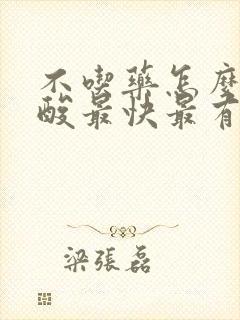 不喫藥怎麼
酸最快最有
梁張磊